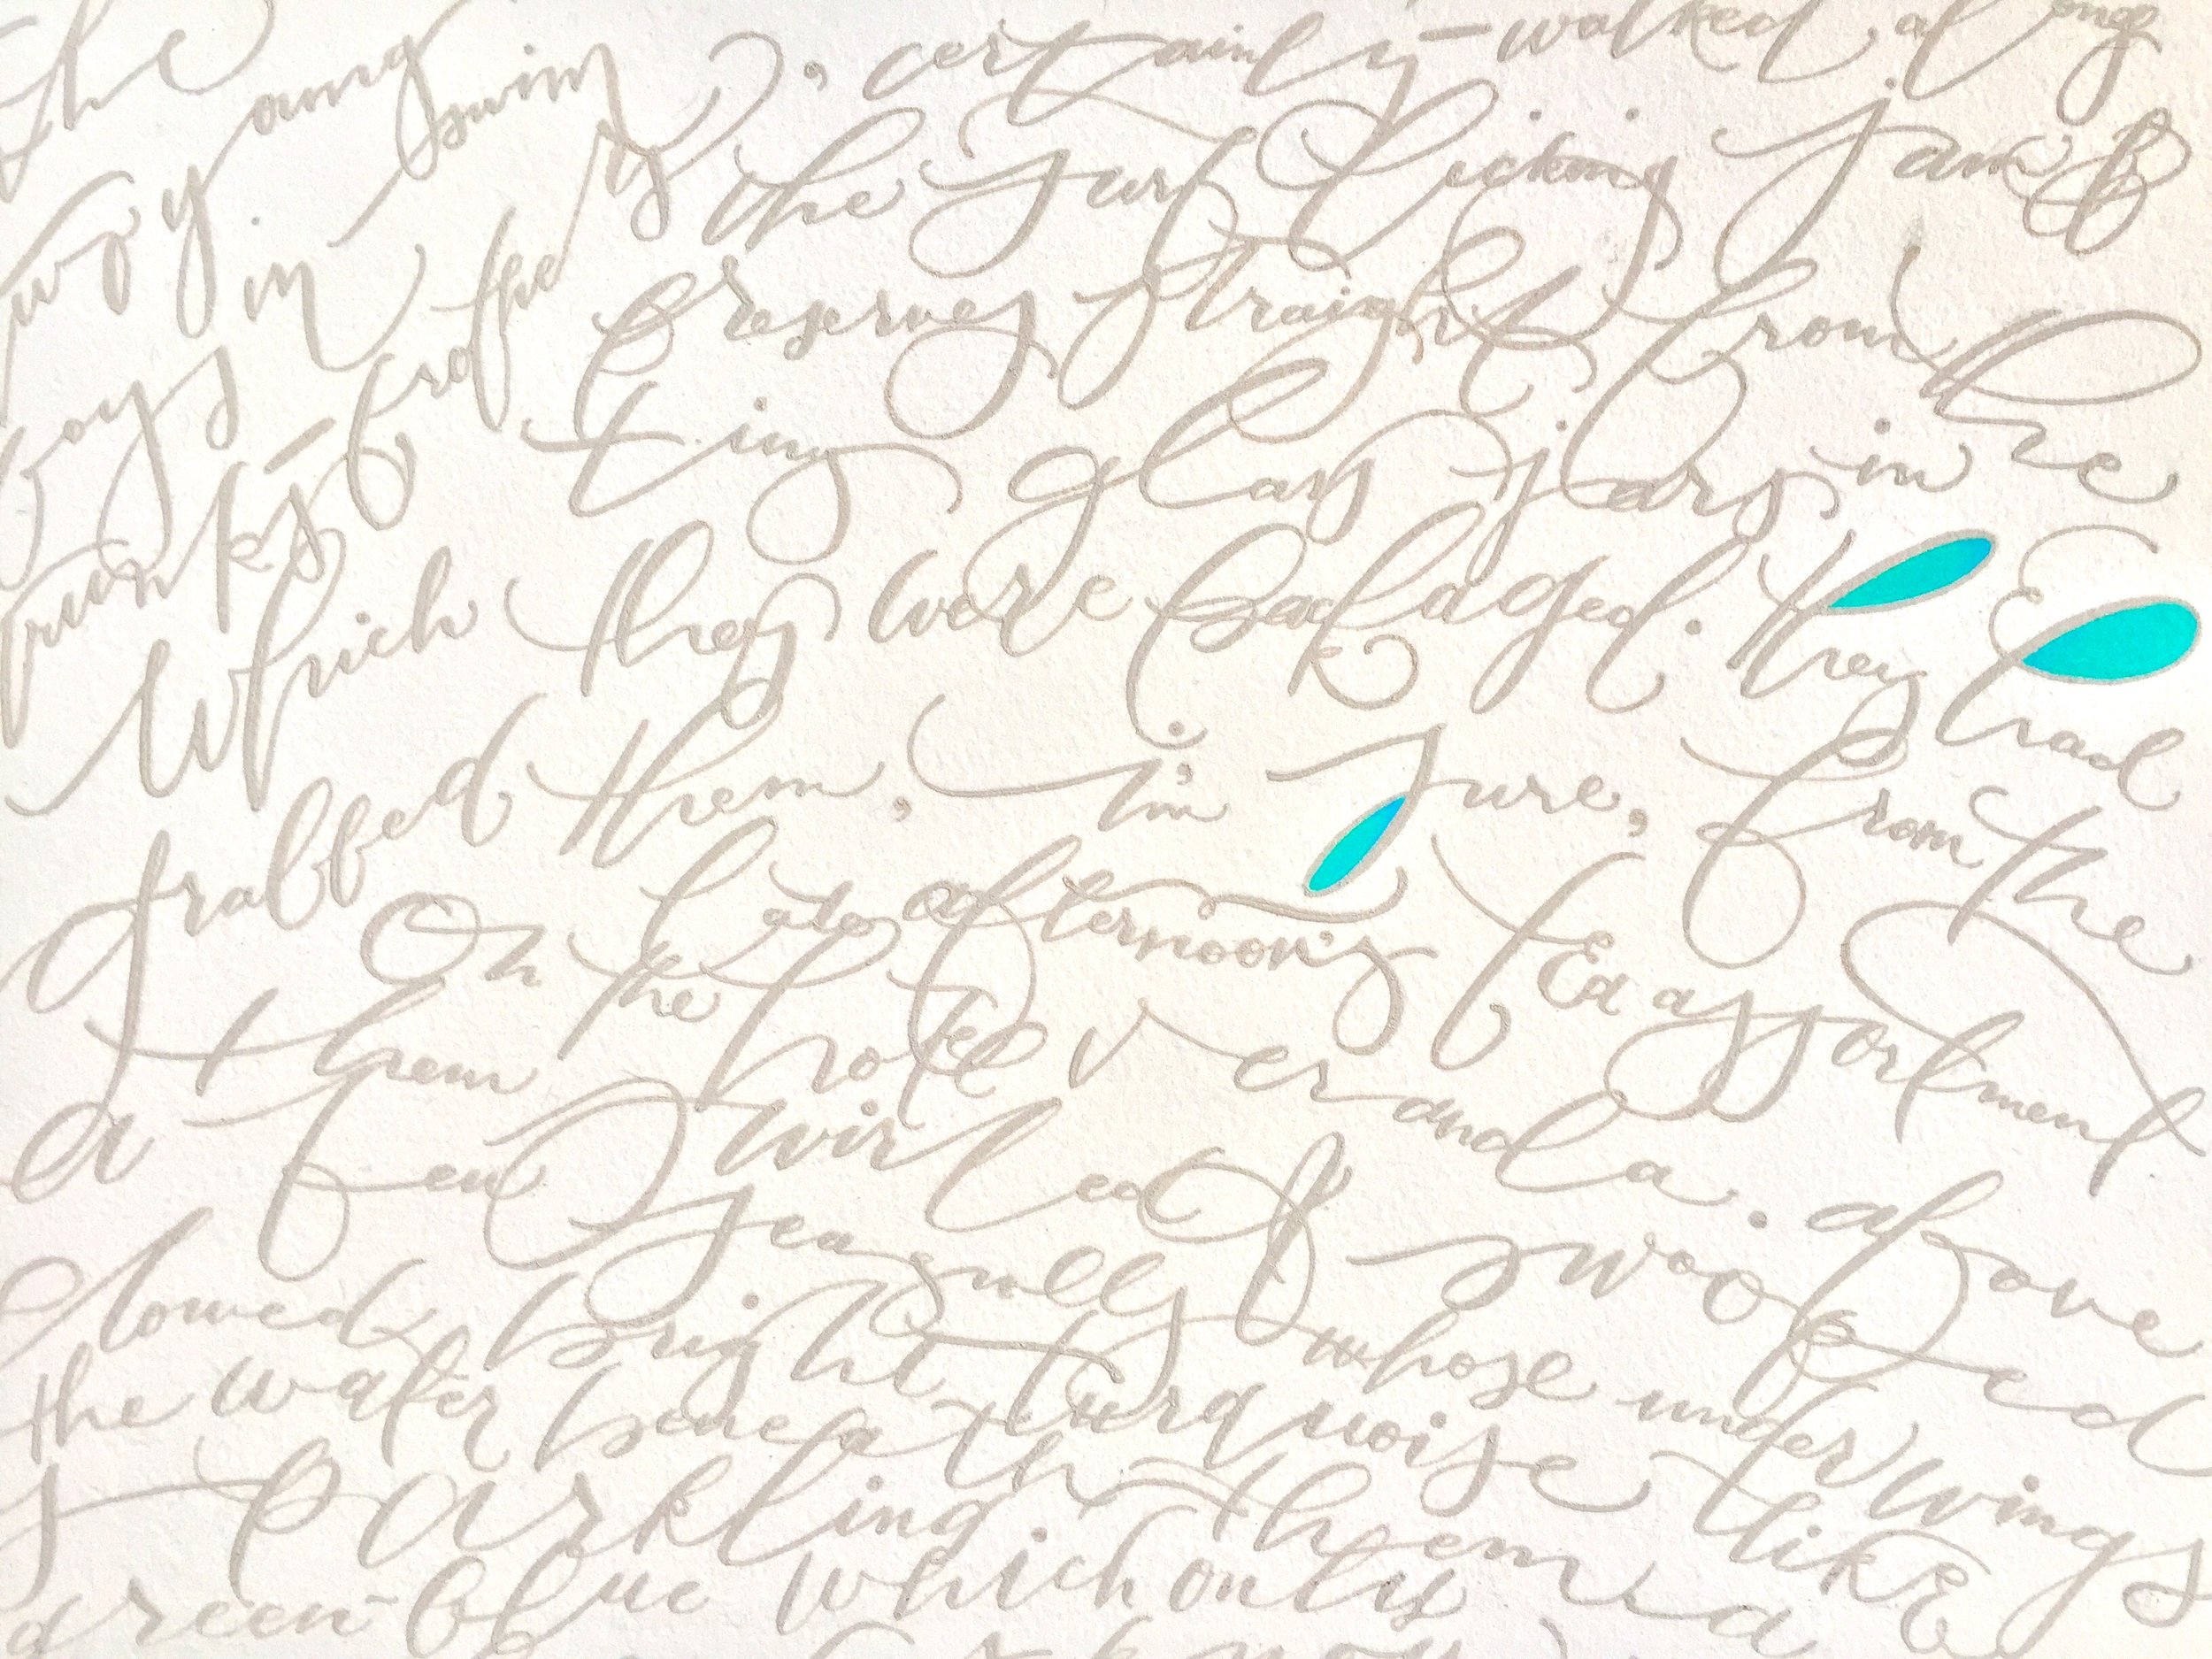 the
two young
boys in swim
trunks—brothers, certainly—walked along
the surf licking jam &
preserves straight from the
ting glass jars in
which they were packaged. they had
grabbed them, I'm sure, from the
tea assortment
on the late afternoon's
hotel veranda. above
them
a few swirled & swooped
seagulls whose underwings
glowed bright turquoise like
the water beneath them
sparkling. a
green-blue which only